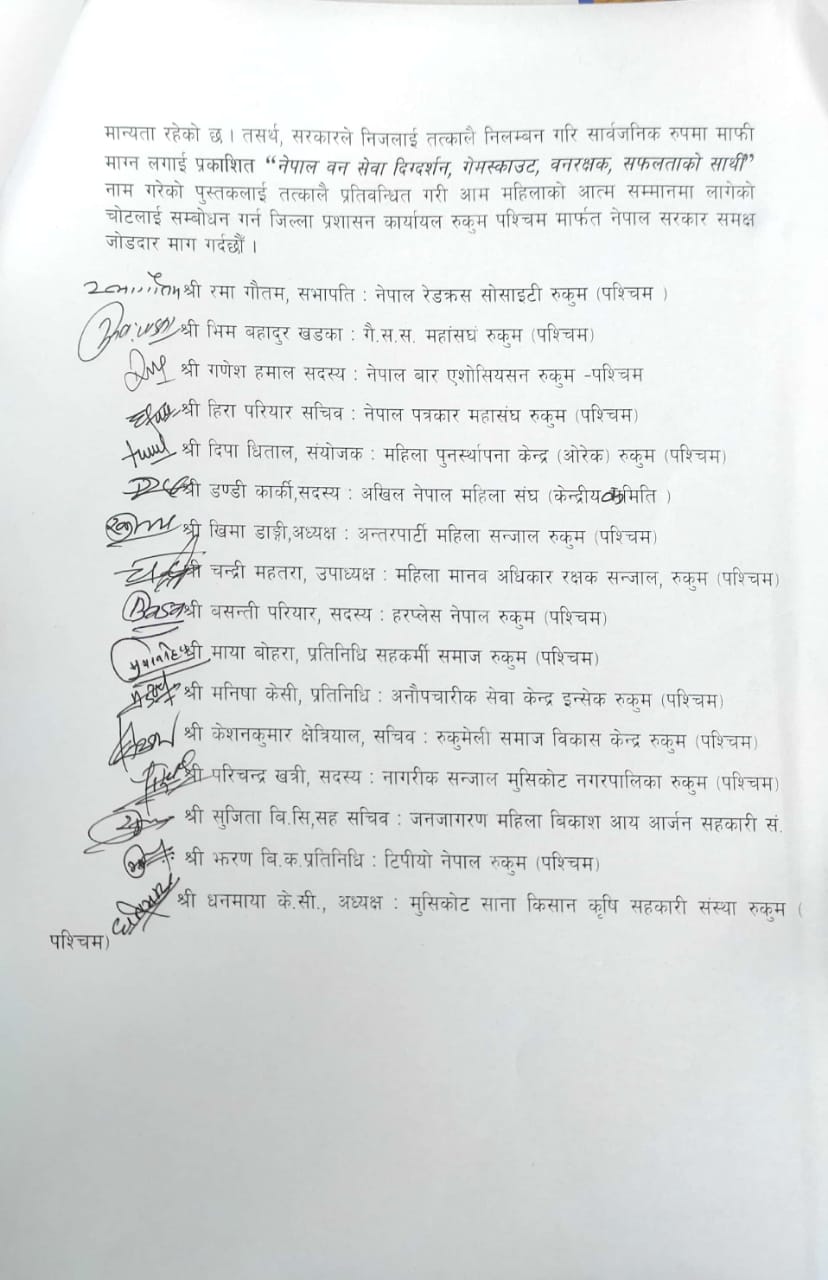 मान्यता रहेको छ । तसर्थ, सरकारले निजलाई तत्कालै निलम्बन गरि सार्वजनिक रुपमा माफी
माग्न लगाई प्रकाशित “नेपाल वन सेवा दिग्दर्शन, गेमस्काउट, वनरक्षक, सफलताको सार्थी”
नाम गरेको पुस्तकलाई तत्कालै प्रतिवन्धित गरी आम महिलाको आत्म सम्मानमा लागेको
चोटलाई सम्बोधन गर्न जिल्ला प्रशासन कार्यायल रुकुम पश्चिम मार्फत नेपाल सरकार समक्ष
जोडदार माग गर्दछौँ ।
श्री रमा गौतम, सभापति : नेपाल रेडक्रस सोसाइटी रुकुम (पश्चिम )
श्री भिम बहादुर खडका : गै.स.स. महांसघं रुकुम (पश्चिम)
श्री गणेश हमाल सदस्य : नेपाल बार एशोसियसन रुकुम -पश्चिम
श्री हिरा परियार सचिव : नेपाल पत्रकार महासंघ रुकुम (पश्चिम)
श्री दिपा धिताल, संयोजक : महिला पुनर्स्थापना केन्द्र (ओरेक) रुकुम (पश्चिम)
श्री डण्डी कार्की,सदस्य : अखिल नेपाल महिला संघ (केन्द्रीय समिति )
श्री खिमा डाङ्गी,अध्यक्ष : अन्तरपार्टी महिला सन्जाल रुकुम (पश्चिम)
श्री चन्द्री महतरा, उपाध्यक्ष : महिला मानव अधिकार रक्षक सन्जाल, रुकुम (पश्चिम)
श्री वसन्ती परियार, सदस्य : हरप्लेस नेपाल रुकुम (पश्चिम)
श्री माया बोहरा, प्रतिनिधि सहकर्मी समाज रुकुम (पश्चिम)
श्री मनिषा केसी, प्रतिनिधि : अनौपचारीक सेवा केन्द्र इन्सेक रुकुम (पश्चिम)
श्री केशनकुमार क्षेत्रियाल, सचिव : रुकुमेली समाज विकास केन्द्र रुकुम (पश्चिम)
श्री परिचन्द्र खत्री, सदस्य : नागरीक सन्जाल मुसिकोट नगरपालिका रुकुम (पश्चिम)
श्री सुजिता बि.सि,सह सचिव : जनजागरण महिला बिकाश आय आर्जन सहकारी सं.
श्री झरण बि.क.प्रतिनिधि : टिपीयो नेपाल रुकुम (पश्चिम)
श्री धनमाया के.सी., अध्यक्ष : मुसिकोट साना किसान कृषि सहकारी संस्था रुकुम (
पश्चिम)